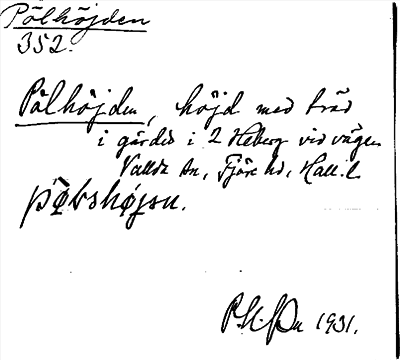 Pålhöjden
352.
Pålhöjden, höjd med träd
i gärdet i 2 Heberg vid vägen
Vallda sn, Fjäre hd, Hall. l.
P. H. 1931.